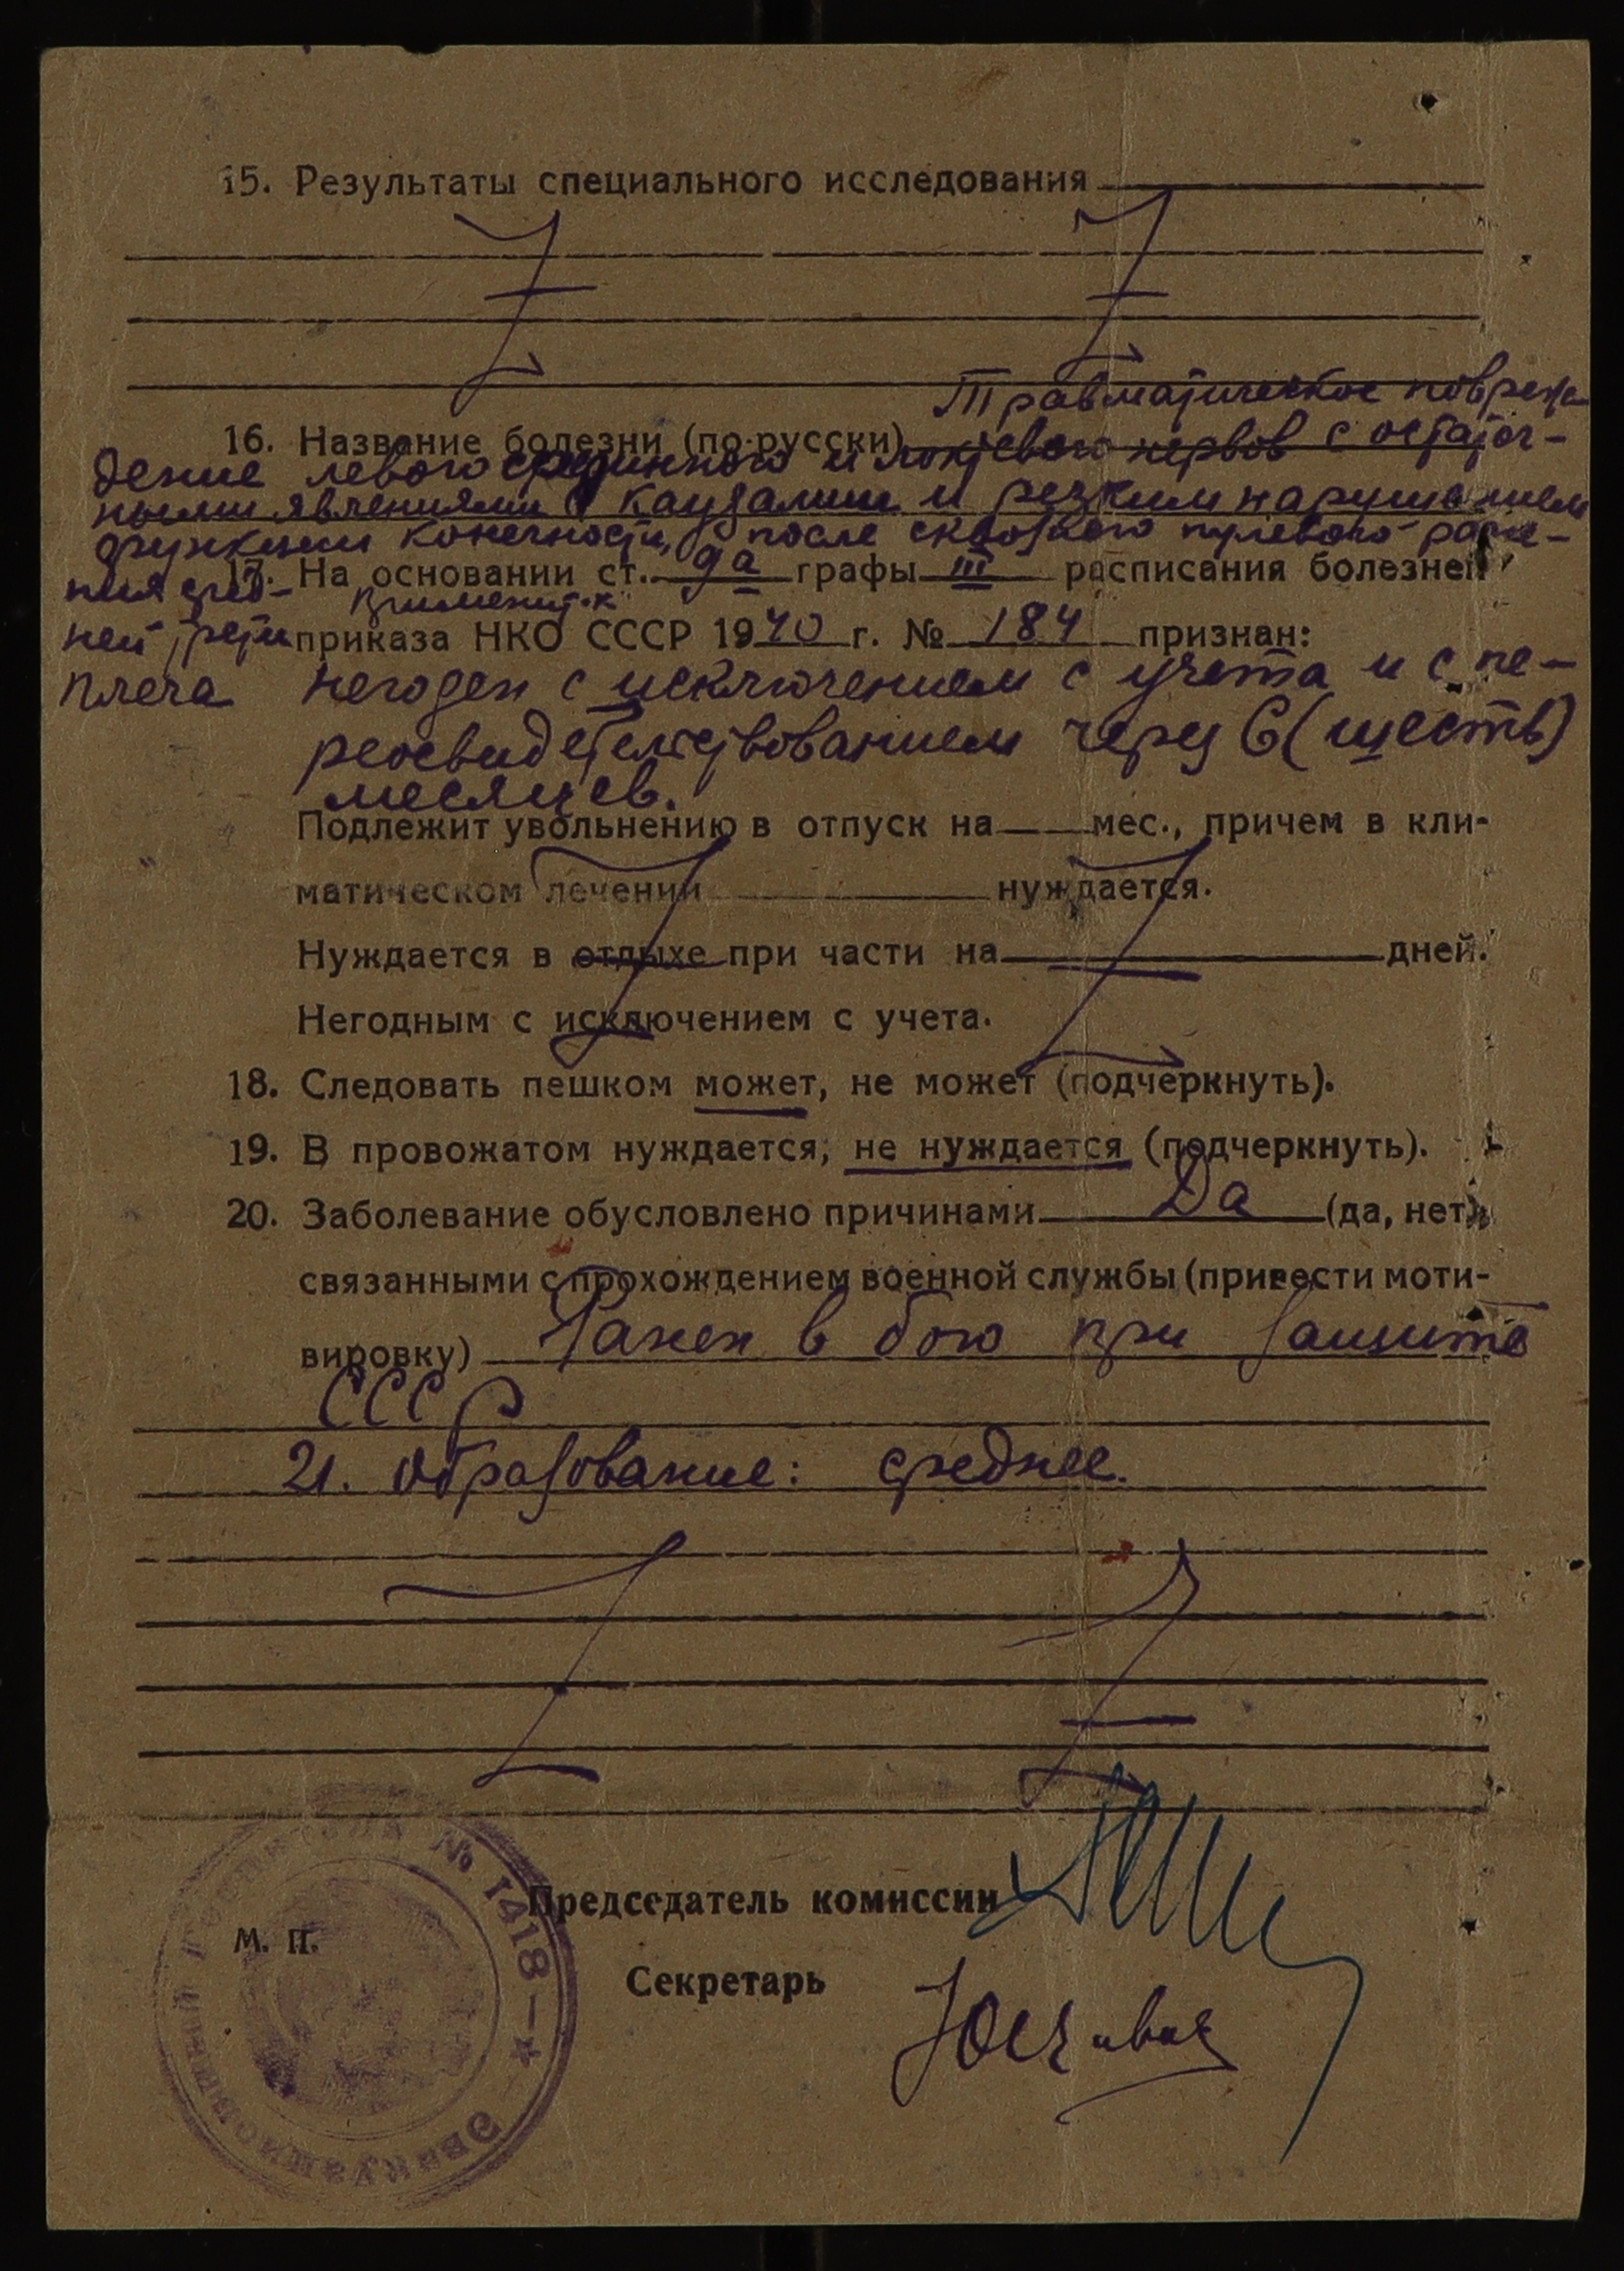 15. Результаты специального исследования
16. Название болезни (по-русски) Травматическое повреж-
дение левого срединного и локтевого нервов с остаточ-
ными явлениями каузалгии и резким нарушением
функции конечности, после сквозного пулевого ране-
ния сред-
ней трети
плеча
17. На основании ст. 9а графы III расписания болезней
применит. к
приказа НКО СССР 1940 г. № 184 признан:
негоден с исключением с учета и с пе-
реосвидетельствованием через 6 (шесть)
месяцев.
Подлежит увольнению в отпуск на мес., причем в кли-
матическом лечении нуждается.
Нуждается в отдыхе при части на дней.
Негодным с исключением с учета.
18. Следовать пешком может, не может (подчеркнуть).
19. В провожатом нуждается, не нуждается (подчеркнуть).
20. Заболевание обусловлено причинами Да (да, нет),
связанными с прохождением военной службы (привести моти-
вировку) Ранен в бою при защите
СССР
21. Образование: среднее.
Председатель комиссии
М. П.
Секретарь
Эвакуационный госпиталь № 1418